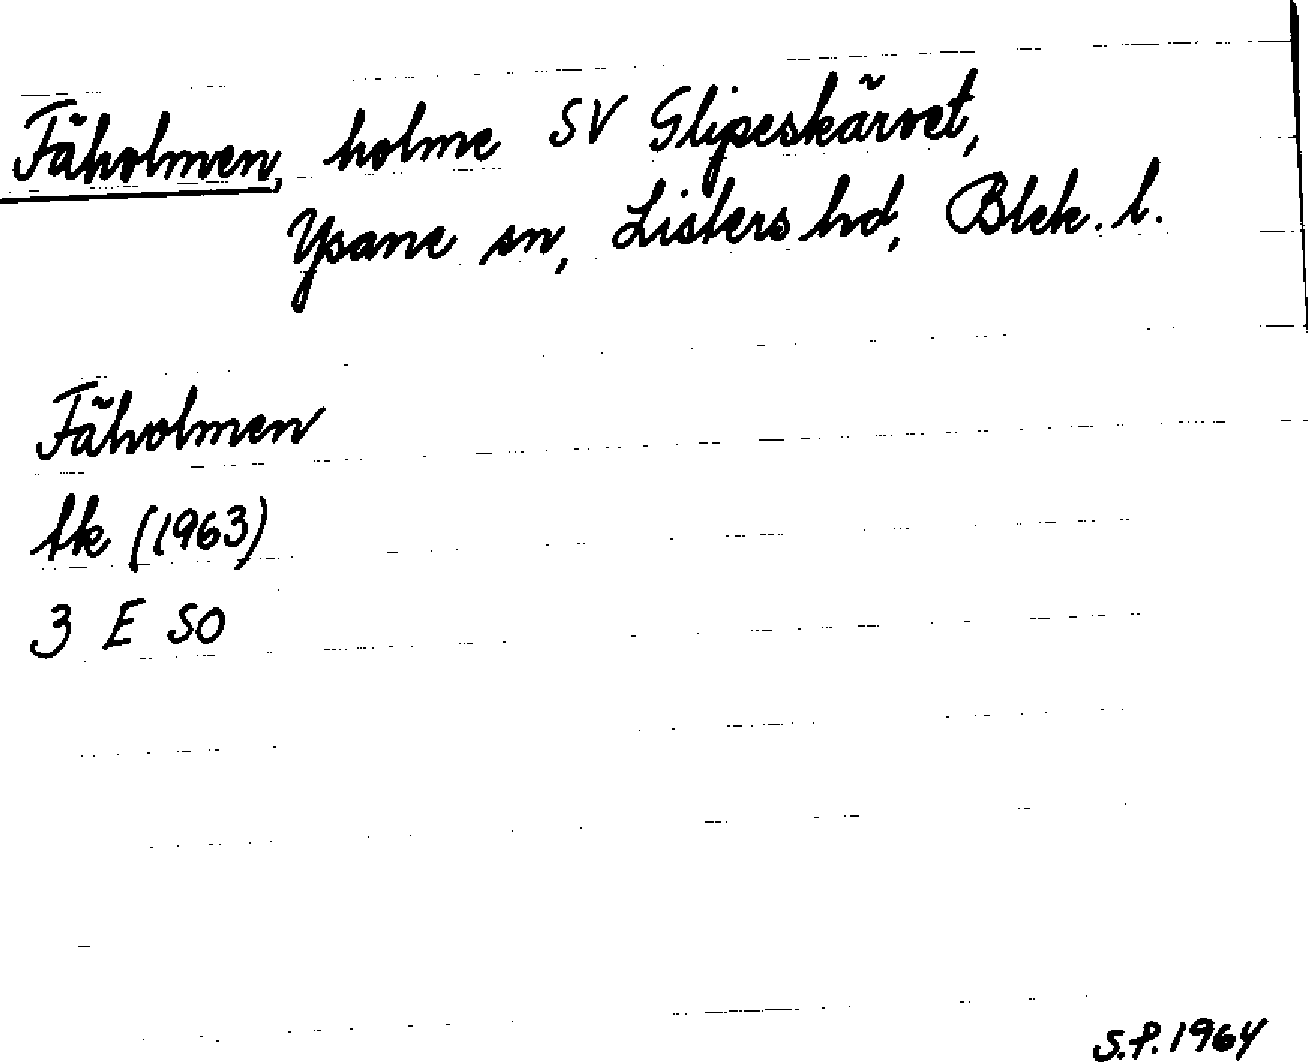 Fäholmen, holme SV Glipeskärvet,
Ysane sn, Listers hd, Blek. l.
Fäholmen
tk (1963)
3 E SO
S.P. 1964